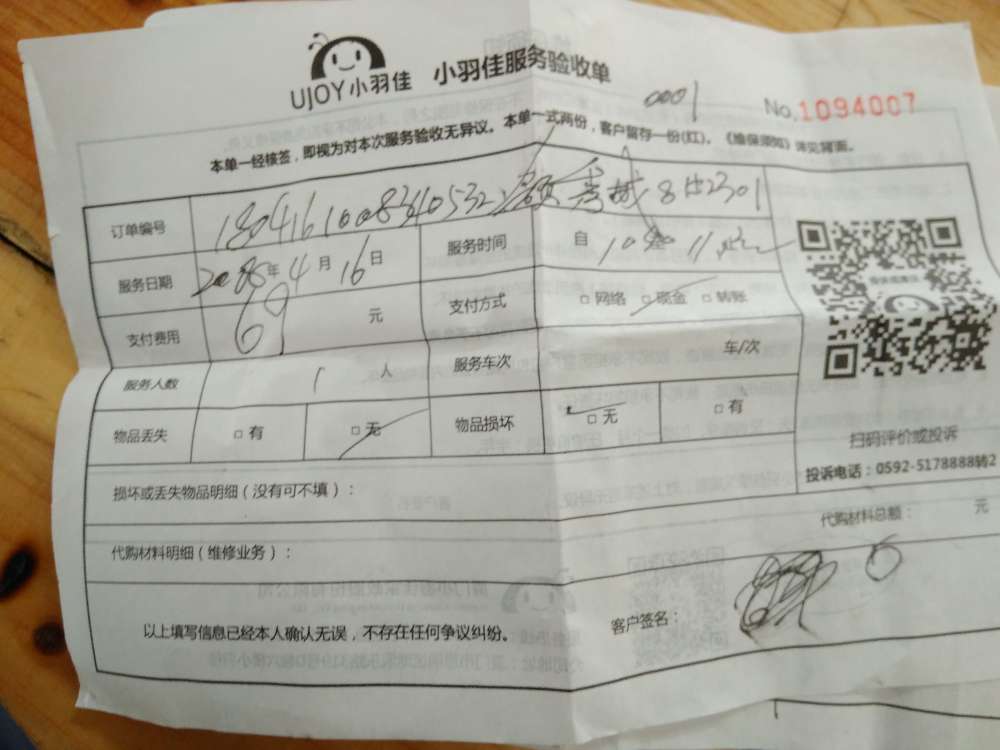 UJOY小羽佳 小羽佳服务验收单
0001 No.1094007
本单一经核签，即视为对本次服务验收无异议。本单一式两份，客户留存一份(红)。《维保须知》详见背面。
订单编号
服务日期 2018年4月16日 服务时间 自 10 11
支付费用 69 元 支付方式 □网络 □现金 □转账
服务人数 1 人 服务车次 车/次
物品丢失 □有 □无 物品损坏 □无 □有
扫码评价或投诉
投诉电话：0592-5178888转2
损坏或丢失物品明细（没有可不填）：
代购材料总额： 元
代购材料明细（维修业务）：
以上填写信息已经本人确认无误，不存在任何争议纠纷。 客户签名：